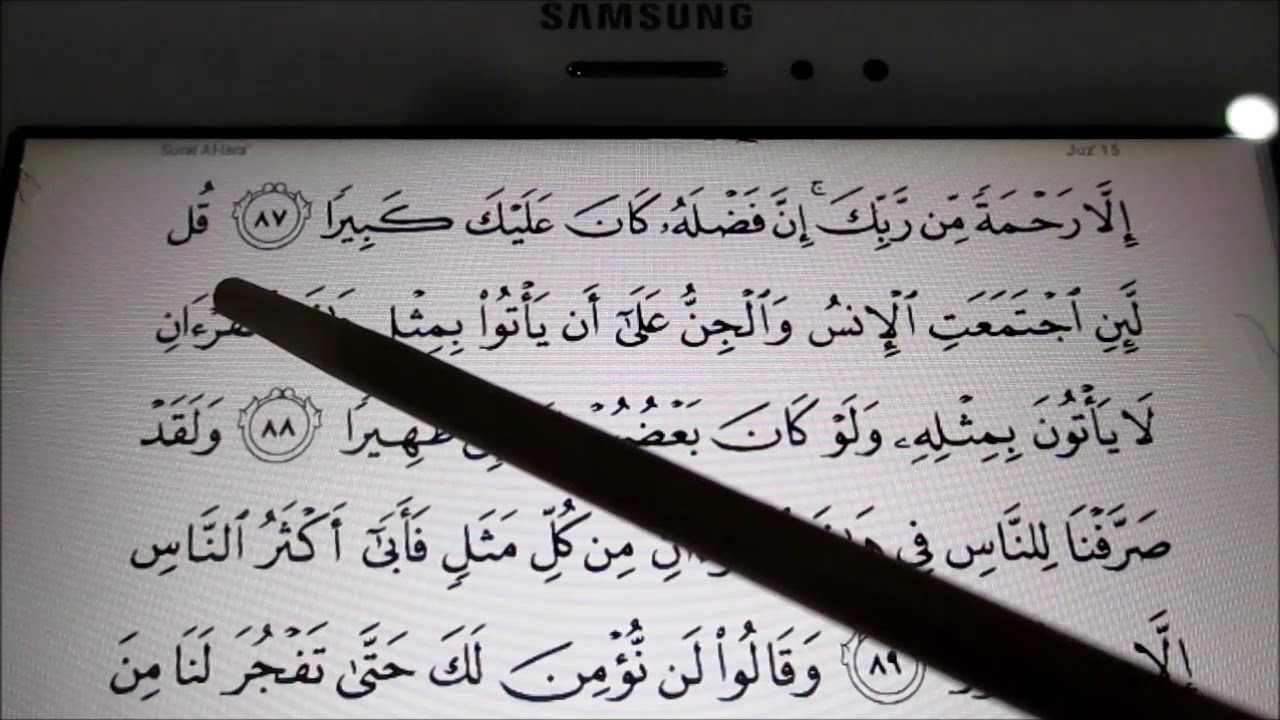 SAMSUNG
Surat Al-Isra'
Juz' 15
إِلَّا رَحْمَةً مِّن رَّبِّكَ ۚ إِنَّ فَضْلَهُۥ كَانَ عَلَيْكَ كَبِيرًا ٨٧ قُل
لَّئِنِ ٱجْتَمَعَتِ ٱلْإِنسُ وَٱلْجِنُّ عَلَىٰٓ أَن يَأْتُوا۟ بِمِثْلِ
لَا يَأْتُونَ بِمِثْلِهِۦ وَلَوْ كَانَ ظَهِيرًا ٨٨ وَلَقَدْ
صَرَّفْنَا لِلنَّاسِ فِى مِن كُلِّ مَثَلٍ فَأَبَىٰٓ أَكْثَرُ ٱلنَّاسِ
إِلَّا ٨٩ وَقَالُوا۟ لَن نُّؤْمِنَ لَكَ حَتَّىٰ تَفْجُرَ لَنَا مِنَ